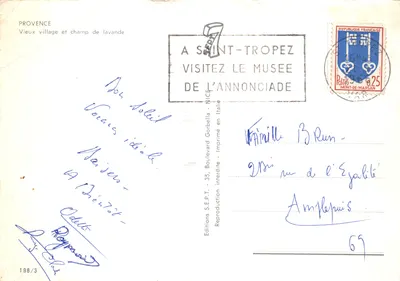 PROVENCE
Vieux village et champ de lavande
SEPT
A SAINT-TROPEZ
VISITEZ LE MUSEE
DE L'ANNONCIADE
REPUBLIQUE FRANÇAISE
0,25
MONT-DE-MARSAN
Bon Soleil
Vacances idéales
Baisers
A Bientôt
Odette
Raymond
Famille Brun
rue de l'Egalité
Amplepuis
69
Editions S.E.P.T. - 35, Boulevard Gorbella - NICE
Reproduction interdite - Imprimé en Italie
188/3